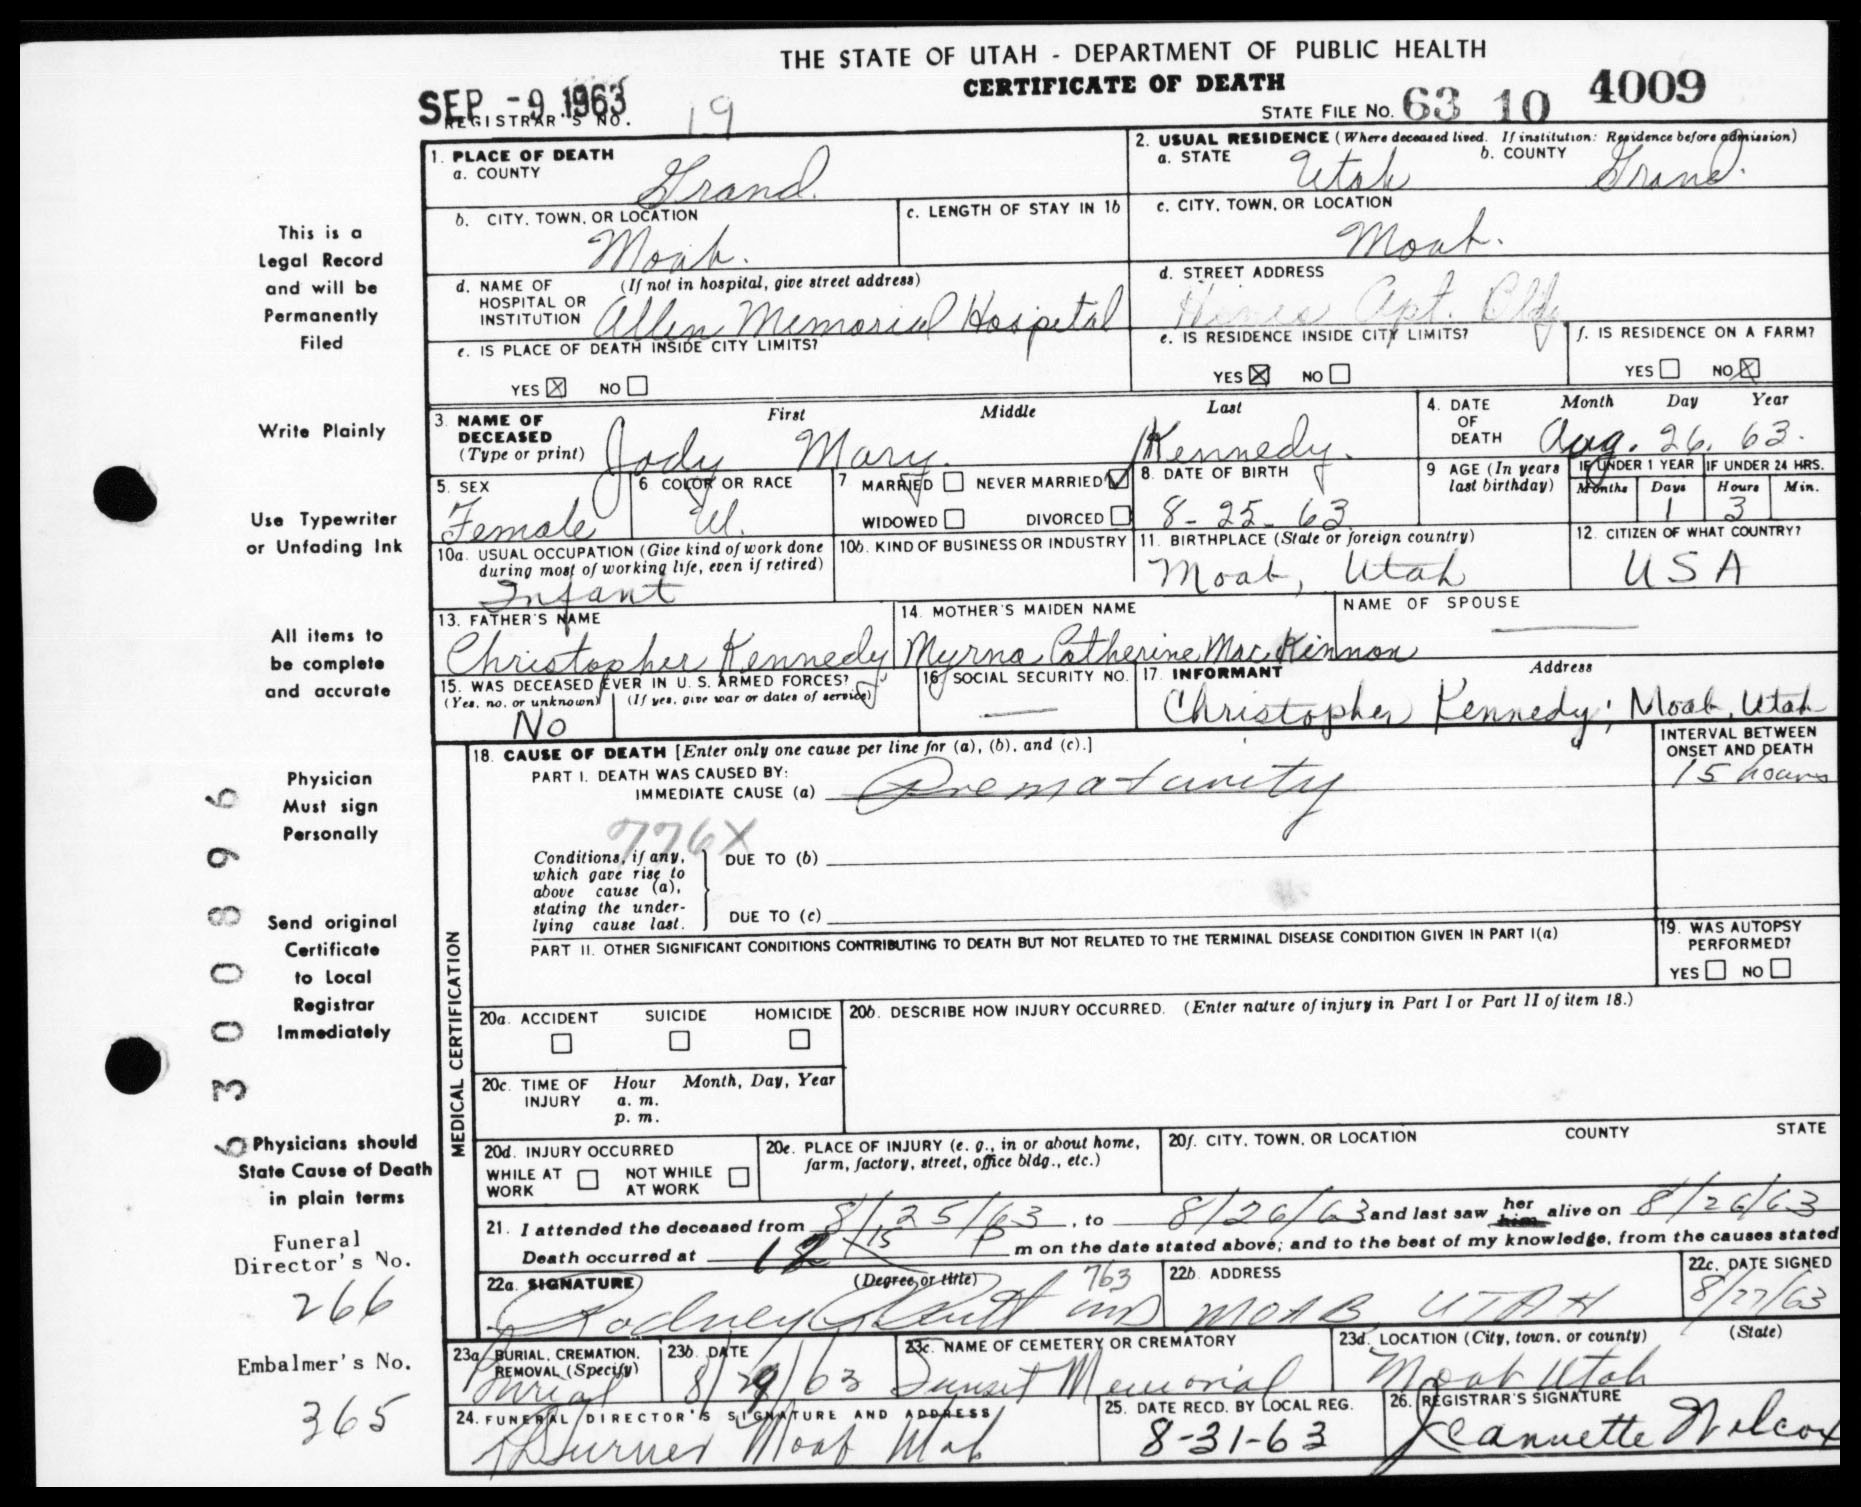 THE STATE OF UTAH - DEPARTMENT OF PUBLIC HEALTH
CERTIFICATE OF DEATH
SEP -9 1963
REGISTRAR'S NO. 19
STATE FILE NO. 63 10 4009
This is a
Legal Record
and will be
Permanently
Filed
Write Plainly
Use Typewriter
or Unfading Ink
All items to
be complete
and accurate
Physician
Must sign
Personally
Send original
Certificate
to Local
Registrar
Immediately
Physicians should
State Cause of Death
in plain terms
Funeral
Director's No.
266
Embalmer's No.
365
6300896
1. PLACE OF DEATH
a. COUNTY
Grand.
2. USUAL RESIDENCE (Where deceased lived. If institution: Residence before admission)
a. STATE Utah b. COUNTY Grand.
b. CITY, TOWN, OR LOCATION
Moab.
c. LENGTH OF STAY IN 1b
c. CITY, TOWN, OR LOCATION
Moab.
d. NAME OF (If not in hospital, give street address)
HOSPITAL OR
INSTITUTION Allen Memorial Hospital
d. STREET ADDRESS
Apt. Bldg
e. IS PLACE OF DEATH INSIDE CITY LIMITS?
YES ☒ NO ☐
e. IS RESIDENCE INSIDE CITY LIMITS?
YES ☒ NO ☐
f. IS RESIDENCE ON A FARM?
YES ☐ NO ☒
3. NAME OF
DECEASED
(Type or print)
First Middle Last
Jody Mary Kennedy.
4. DATE
OF
DEATH
Month Day Year
Aug. 26, 63.
5. SEX
Female
6 COLOR OR RACE
W.
7 MARRIED ☐ NEVER MARRIED ☑
WIDOWED ☐ DIVORCED ☐
8. DATE OF BIRTH
8-25-63
9 AGE (In years
last birthday)
IF UNDER 1 YEAR
Months Days
1
IF UNDER 24 HRS.
Hours Min.
3
10a. USUAL OCCUPATION (Give kind of work done
during most of working life, even if retired)
Infant
10b. KIND OF BUSINESS OR INDUSTRY
11. BIRTHPLACE (State or foreign country)
Moab, Utah
12. CITIZEN OF WHAT COUNTRY?
USA
13. FATHER'S NAME
Christopher Kennedy
14. MOTHER'S MAIDEN NAME
Myrna Catherine MacKinnon
NAME OF SPOUSE
15. WAS DECEASED EVER IN U. S. ARMED FORCES?
(Yes, no, or unknown) (If yes, give war or dates of service)
No
16 SOCIAL SECURITY NO.
17. INFORMANT Address
Christopher Kennedy; Moab, Utah
MEDICAL CERTIFICATION
18. CAUSE OF DEATH [Enter only one cause per line for (a), (b), and (c).]
PART I. DEATH WAS CAUSED BY:
IMMEDIATE CAUSE (a) Prematurity
INTERVAL BETWEEN
ONSET AND DEATH
15 hours
776X
Conditions, if any,
which gave rise to
above cause (a),
stating the under-
lying cause last.
DUE TO (b)
DUE TO (c)
PART II. OTHER SIGNIFICANT CONDITIONS CONTRIBUTING TO DEATH BUT NOT RELATED TO THE TERMINAL DISEASE CONDITION GIVEN IN PART I(a)
19. WAS AUTOPSY
PERFORMED?
YES ☐ NO ☐
20a. ACCIDENT SUICIDE HOMICIDE
☐ ☐ ☐
20b. DESCRIBE HOW INJURY OCCURRED. (Enter nature of injury in Part I or Part II of item 18.)
20c. TIME OF Hour Month, Day, Year
INJURY a. m.
p. m.
20d. INJURY OCCURRED
WHILE AT ☐ NOT WHILE ☐
WORK AT WORK
20e. PLACE OF INJURY (e. g., in or about home,
farm, factory, street, office bldg., etc.)
20f. CITY, TOWN, OR LOCATION COUNTY STATE
21. I attended the deceased from 8/25/63, to 8/26/63 and last saw her him alive on 8/26/63
Death occurred at 12 15 P m on the date stated above; and to the best of my knowledge, from the causes stated
22a. SIGNATURE (Degree or title) 763
Rodney MD
22b. ADDRESS
MOAB, UTAH
22c. DATE SIGNED
8/27/63
23a. BURIAL, CREMATION,
REMOVAL (Specify)
Burial
23b. DATE
8/29/63
23c. NAME OF CEMETERY OR CREMATORY
Sunset Memorial
23d. LOCATION (City, town, or county) (State)
Moab Utah
24. FUNERAL DIRECTOR'S SIGNATURE AND ADDRESS
Moab Utah
25. DATE RECD. BY LOCAL REG.
8-31-63
26. REGISTRAR'S SIGNATURE
Jeannette Wilcox